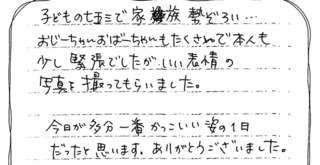 子どもの七五三で家族勢ぞろい…
おじーちゃんおばーちゃんもたくさんで本人も
少し緊張でしたが、いい表情の
写真を撮ってもらいました。
今日が多分一番かっこいい姿の1日
だったと思います。ありがとうございました。